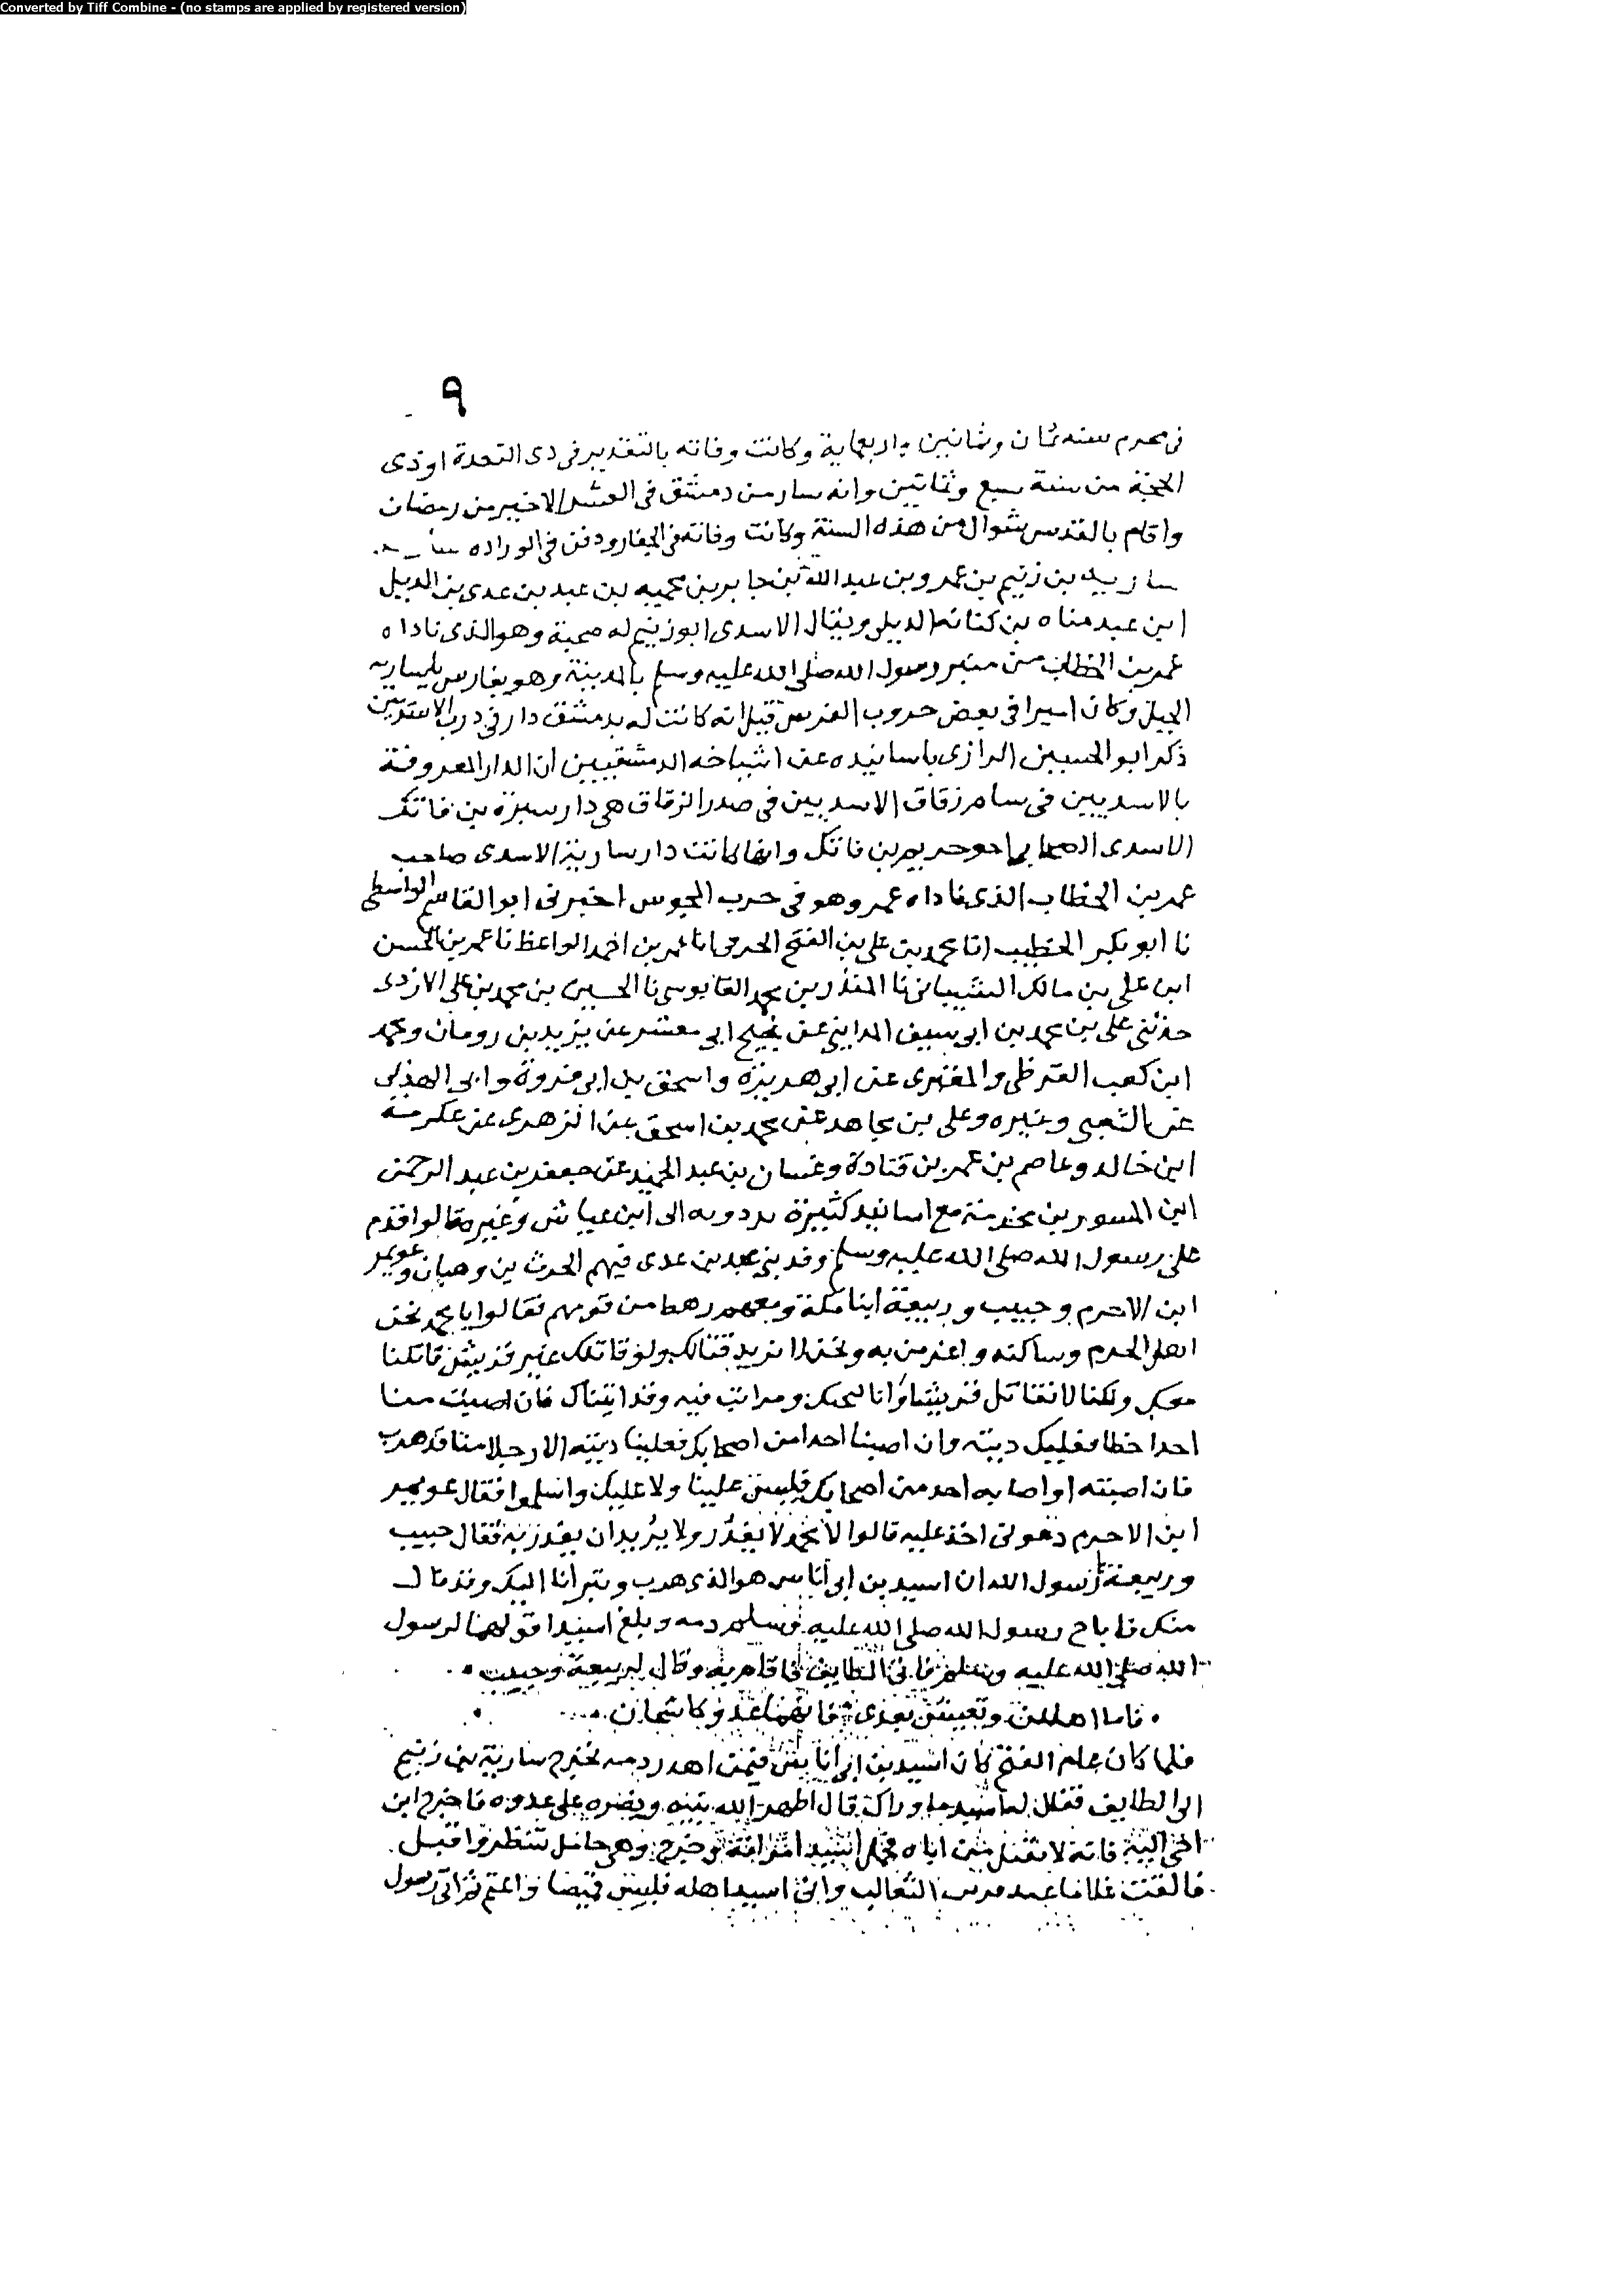 Converted by Tiff Combine - (no stamps are applied by registered version)
٩
فى محرم سنة ثمان وثمانين واربعماية وكانت وفاته بالتقدير فى ذى القعدة او ذى
الحجة من سنة سبع وثمانين وانه سار من دمشق فى العشر الاخير من رمضان
واقام بالقدس شوال من هذه السنة وكانت وفاته فى الجفار ودفن فى الورادة
سارية بن زنيم بن عمرو بن عبد الله بن جابر بن محمية بن عبد بن عدى بن الديل
ابن عبد مناه بن كنانة الديلى ويقال الاسدى ابو زنيم له صحبة وهو الذى ناداه
عمر بن الخطاب من منبر رسول الله صلى الله عليه وسلم بالمدينة وهو بفارس يا سارية
الجبل وكان اميرا فى بعض حروب الفرس قيل انه كانت له بدمشق دار فى درب الاسديين
ذكر ابو الحسين الرازى باسانيده عن اشياخه الدمشقيين ان الدار المعروفة
بالاسديين فى زقاق الاسديين فى صدر الزقاق هى دار سبرة بن فاتك
الاسدى الصحابى اخو خريم بن فاتك وانها كانت دار سارية الاسدى صاحب
عمر بن الخطاب الذى ناداه عمر وهو فى حرب المجوس اخبرنى ابو القاسم الواسطى
نا ابو بكر الخطيب انا محمد بن على بن الفتح الحربى انا عمر بن احمد الواعظ نا عمر بن الحسن
ابن على بن مالك الشيبانى نا المنذر بن محمد القابوسى نا الحسين بن محمد بن على الازدى
حدثنى على بن محمد بن ابى سيف المداينى عن نجيح ابى معشر عن يزيد بن رومان ومحمد
ابن كعب القرظى والمقبرى عن ابى هريرة واسحق بن ابى فروة وابى الهذلى
عن الشعبى وغيره وعلى بن مجاهد عن محمد بن اسحق عن الزهرى عن عكرمة
ابن خالد وعاصم بن عمر بن قتادة وغسان بن عبد الحميد عن جعفر بن عبد الرحمن
ابن المسور بن مخرمة مع اسانيد كثيرة يردونه الى ابن عياش وغيره قالوا قدم
على رسول الله صلى الله عليه وسلم وفد بنى عبد بن عدى فيهم الحرث بن وهبان وعويمر
ابن الاحرم وحبيب وربيعة ابنا مكة ومعهم رهط من قومهم فقالوا يا محمد نحن
اهل الحرم وساكنه واعز من به ونحن لا نريد قتالك ولو قاتلك غير قريش قاتلنا
معك ولكنا لا نقاتل قريشا وانا لنحبك ومن انت فيه وقد اتيناك فان اصبت منا
احدا خطا فعليك ديته وان اصبنا احدا من اصحابك فعلينا ديته الا رجلا منا قد هرب
فان اصبته او اصابه احد من اصحابك فليس علينا ولا عليك واسلموا فقال عويمر
ابن الاحرم دعونى اخذ عليه قالوا لا محمد لا يغدر ولا يريد ان يغدر به فقال حبيب
وربيعة يا رسول الله ان اسيد بن ابى اناس هو الذى هرب وتبرانا اليك وقد نال
منك فاباح رسول الله صلى الله عليه وسلم دمه وبلغ اسيدا قولهما لرسول
الله صلى الله عليه وسلم فاتى الطايف فاقام به وقال لربيعة وحبيب
فاما اهلكن وتعيش بعدى فانهما عدو كاشحان
فلما كان عام الفتح كان اسيد بن ابى اناس فيمن اهدر دمه فخرج سارية بن زنيم
الى الطايف فقال له اسيد ما وراك قال اظهر الله نبيه ونصره على عدوه فاخرج ابن
اخى اليه فانه لا يقتل من اتاه فحمل اسيد امراته وخرج وهى حامل تنتظر واقبل
فالقت غلاما عند قرن الثعالب واتى اسيد اهله فلبس قميصا واعتم ثم اتى رسول